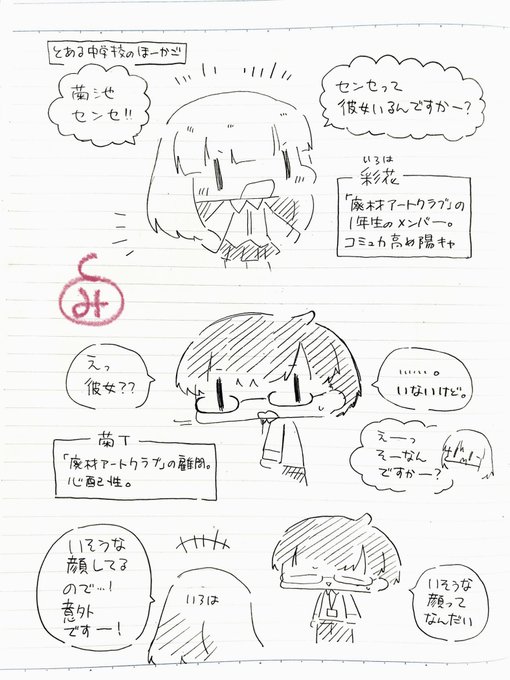 とある中学校のほーかご
菊池
センセ!!
センセって
彼女いるんですかー?
いろは
彩花
「廃材アートクラブ」の
1年生のメンバー。
コミュカ高め陽キャ
み
えっ
彼女??
……。
いないけど。
菊T
「廃材アートクラブ」の顧問。
心配性。
えーっ
そーなん
ですかー?
いそうな
顔してる
ので…!
意外
ですー!
いろは
いそうな
顔って
なんだい